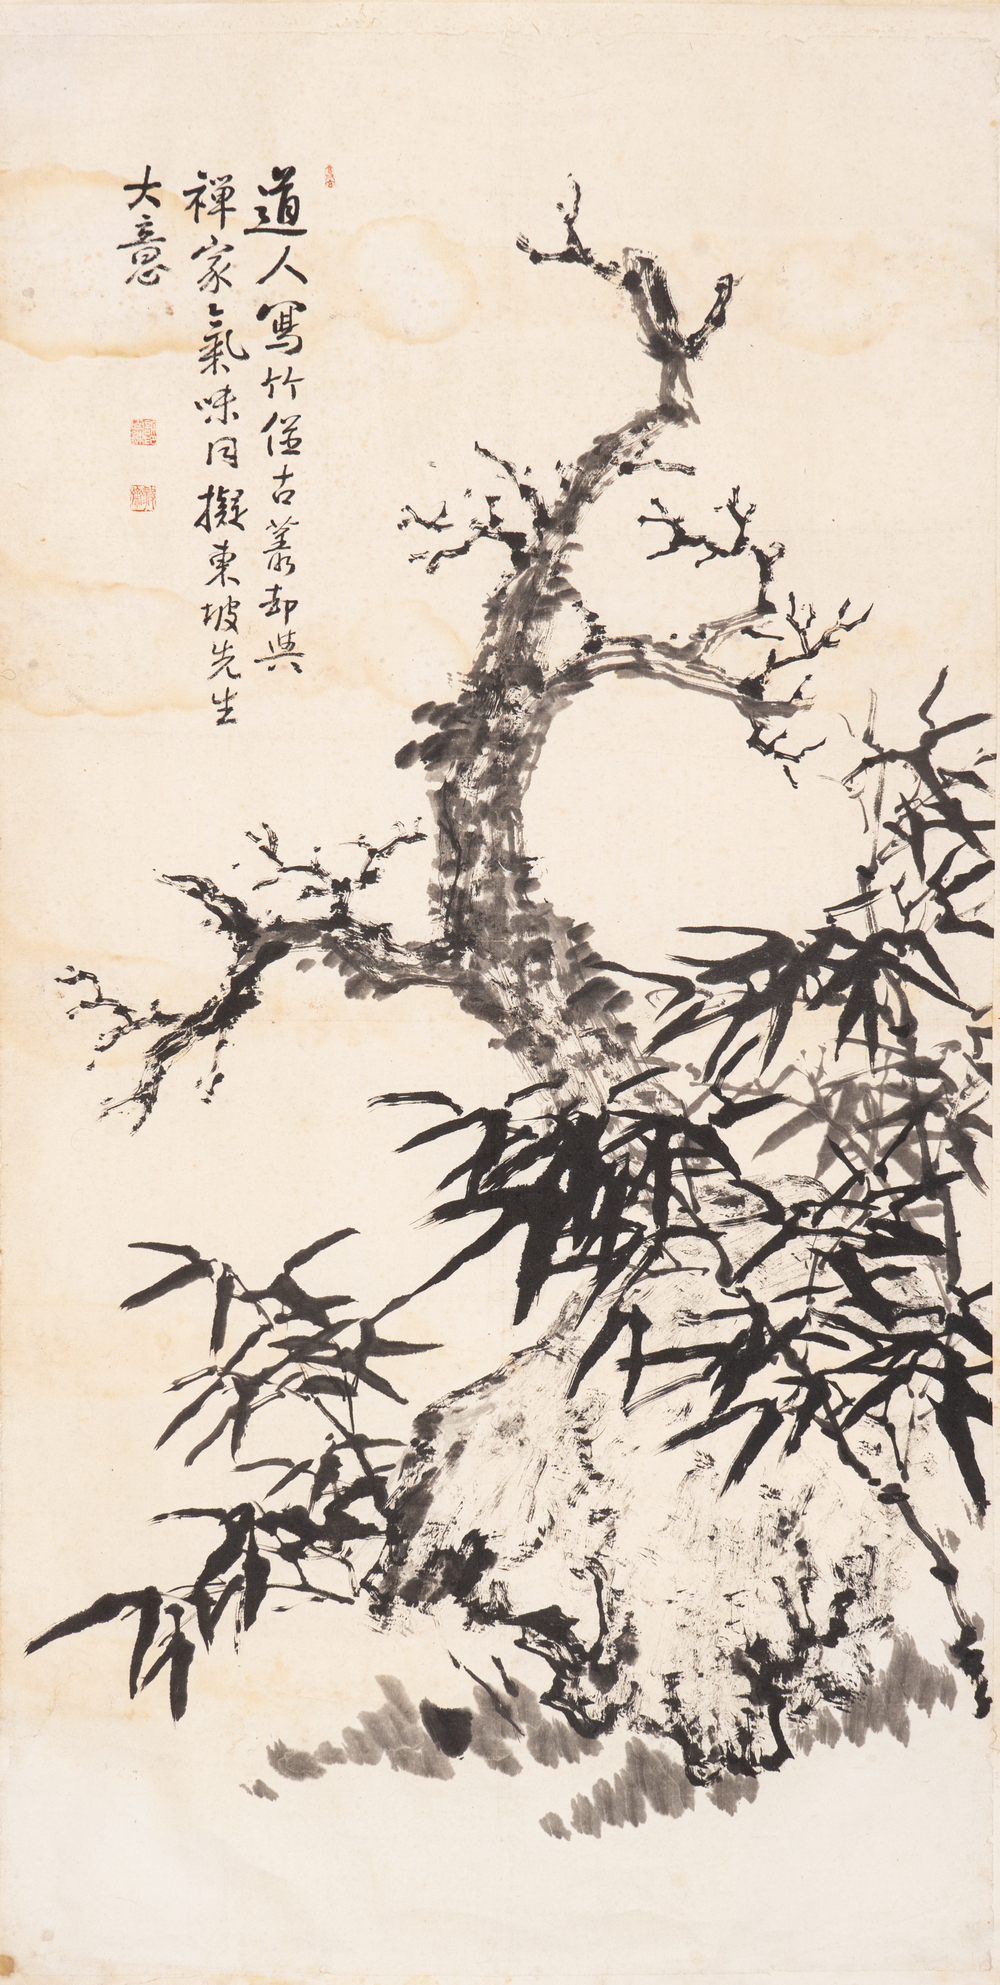 道人寫竹併古叢却與
禪家氣味同擬東坡先生
大意